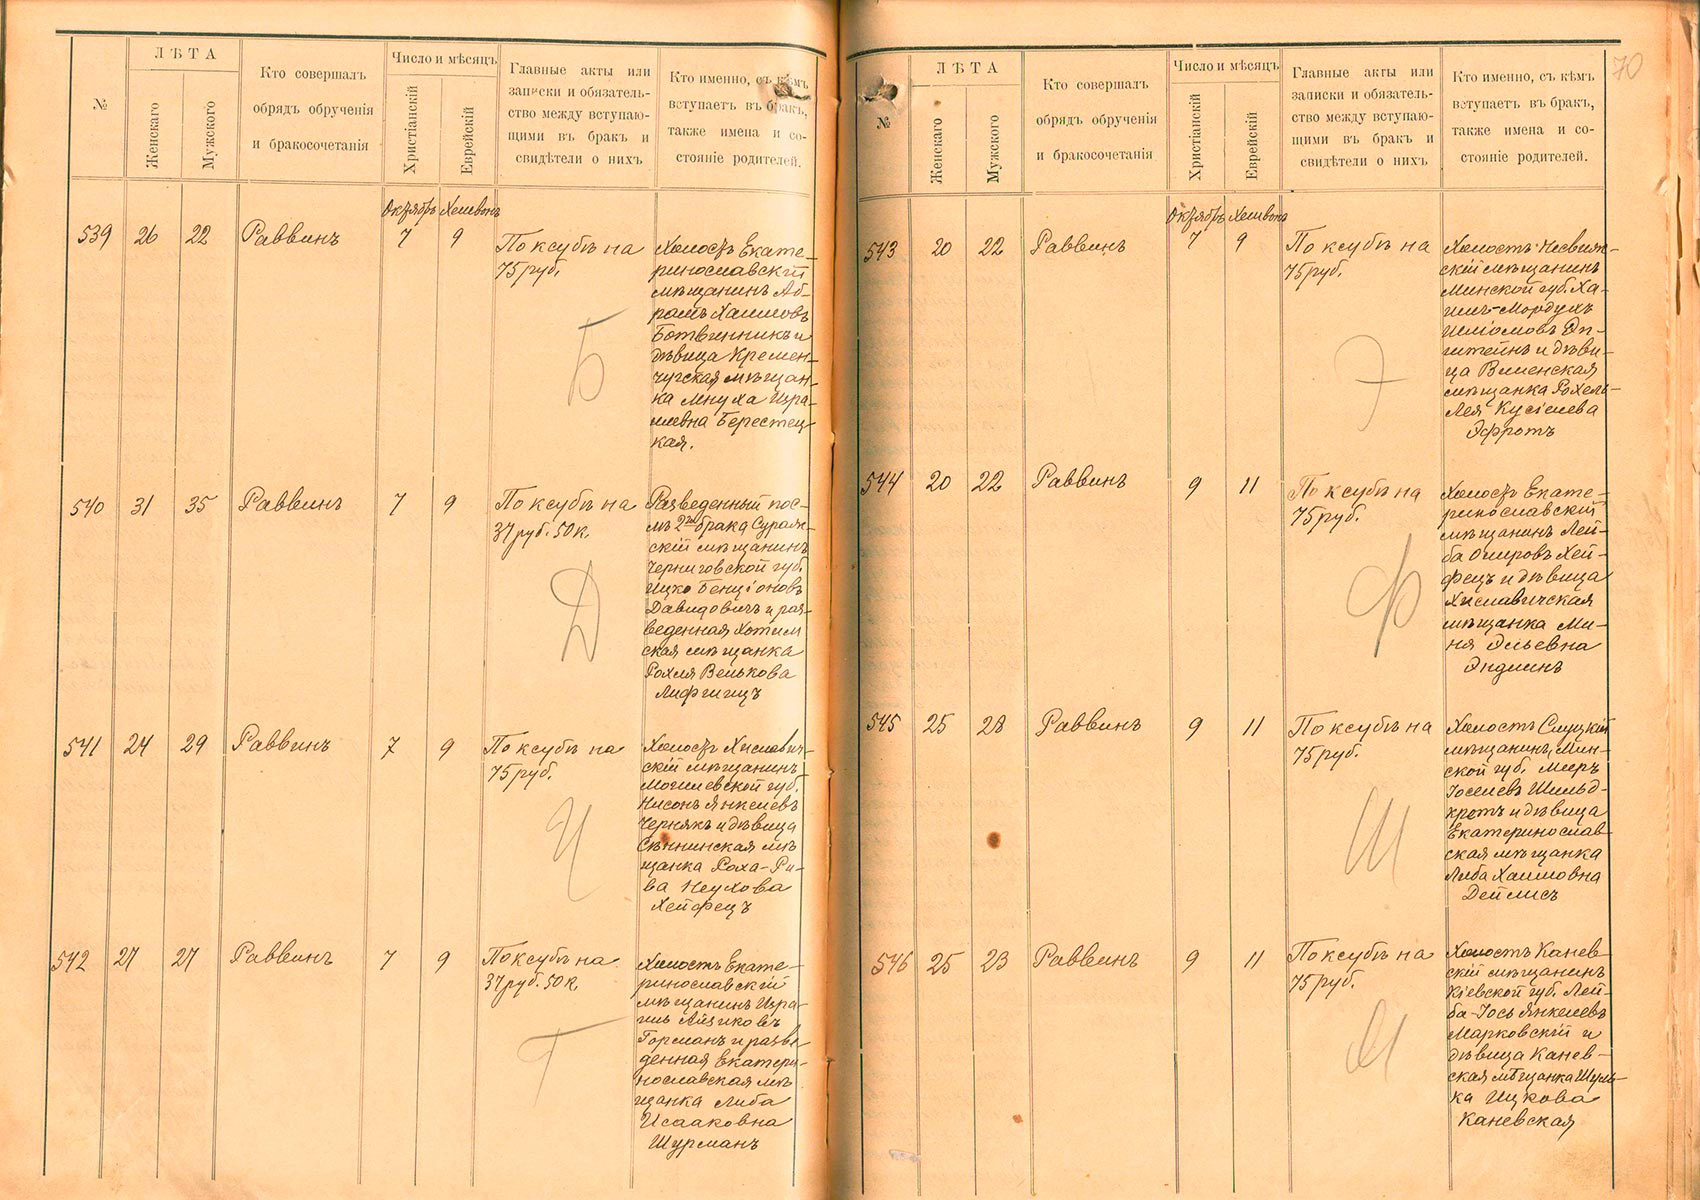 №
ЛѢТА
Женскаго
Мужского
Кто совершалъ
обрядъ обрученія
и бракосочетанія
Число и мѣсяцъ
Христіанскій
Еврейскій
Главные акты или
записки и обязатель-
ство между вступаю-
щими въ бракъ и
свидѣтели о нихъ
Кто именно, съ кѣмъ
вступаетъ въ бракъ,
также имена и со-
стояніе родителей.
Октябрь Хешвонъ
539 26 22 Раввинъ 7 9
По ксубѣ на
75 руб.
Холостъ Екате-
ринославскій
мѣщанинъ Аб-
рамъ Хаимовъ
Ботвинникъ и
дѣвица Кремен-
чугская мѣщан-
ка Мнуха Изра-
илевна Берестец-
кая.
Б
540 31 35 Раввинъ 7 9
По ксубѣ на
37 руб. 50 к.
Разведенный пос-
лѣ 2го брака Сураж-
скій мѣщанинъ
Черниговской губ.
Ицко Бенціоновъ
Давидовичъ и раз-
веденная Хотим
ская мѣщанка
Рохля Велькова
Лифшицъ
Д
541 24 29 Раввинъ 7 9
По ксубѣ на
75 руб.
Холостъ Хиславич-
скій мѣщанинъ
Могилевской губ.
Нисонъ Янкелевъ
Чернякъ и дѣвица
Сѣннинская мѣ
щанка Роха-Ри-
ва Неухова
Хейфецъ
Ч
542 27 27 Раввинъ 7 9
По ксубѣ на
37 руб. 50 к.
Холостъ Екате-
ринославскій
мѣщанинъ Изра-
иль Айзиковъ
Горманъ и разве-
денная Екатери-
нославская мѣ
щанка Либа
Исааковна
Шурманъ
Г
70
№
ЛѢТА
Женскаго
Мужского
Кто совершалъ
обрядъ обрученія
и бракосочетанія
Число и мѣсяцъ
Христіанскій
Еврейскій
Главные акты или
записки и обязатель-
ство между вступаю-
щими въ бракъ и
свидѣтели о нихъ
Кто именно, съ кѣмъ
вступаетъ въ бракъ,
также имена и со-
стояніе родителей.
Октябрь Хешвонъ
543 20 22 Раввинъ 7 9
По ксубѣ на
75 руб.
Холостъ Несвиж-
скій мѣщанинъ
Минской губ. Ха-
имъ-Мордухъ
Шліомовъ Эп-
штейнъ и дѣви-
ца Виленская
мѣщанка Рохель-
Лея Кусіелева
Эфротъ
Э
544 20 22 Раввинъ 9 11
По ксубѣ на
75 руб.
Холостъ Екате-
ринославскій
мѣщанинъ Лей-
ба Ошеровъ Хей-
фецъ и дѣвица
Хиславичская
мѣщанка Ми-
ня Эльевна
Эндлинъ
Ф
545 25 28 Раввинъ 9 11
По ксубѣ на
75 руб.
Холостъ Слуцкій
мѣщанинъ, Мин-
ской губ. Мееръ
Іоселевъ Шильд-
кротъ и дѣвица
Екатеринослав-
ская мѣщанка
Либа Хаимовна
Дейлисъ
Ш
546 25 23 Раввинъ 9 11
По ксубѣ на
75 руб.
Холостъ Канев-
скій мѣщанинъ
Кіевской губ. Лей-
ба-Іось Янкелевъ
Марковскій и
дѣвица Канев-
ская мѣщанка Шуль-
ка Ицкова
Каневская
М